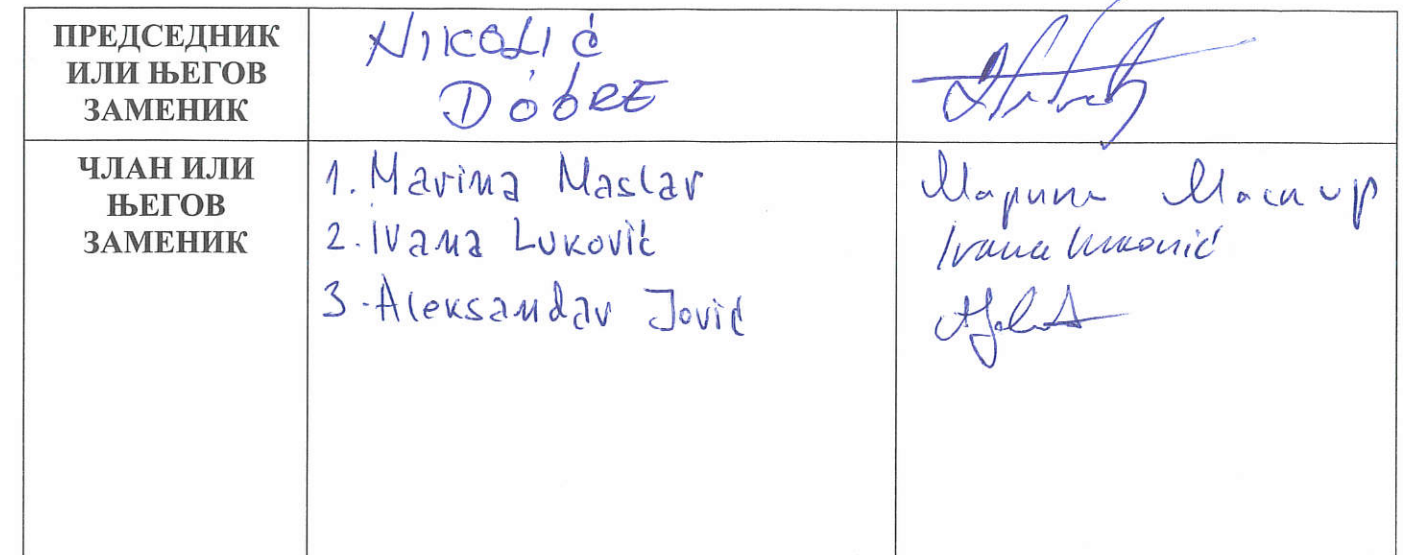 ПРЕДСЕДНИК
ИЛИ ЊЕГОВ
ЗАМЕНИК
NIKOLIĆ
DOBRE
ЧЛАН ИЛИ
ЊЕГОВ
ЗАМЕНИК
1. Marina Maslar
2. Ivana Luković
3. Aleksandar Jović
Марина Маслар
Ivana Luković